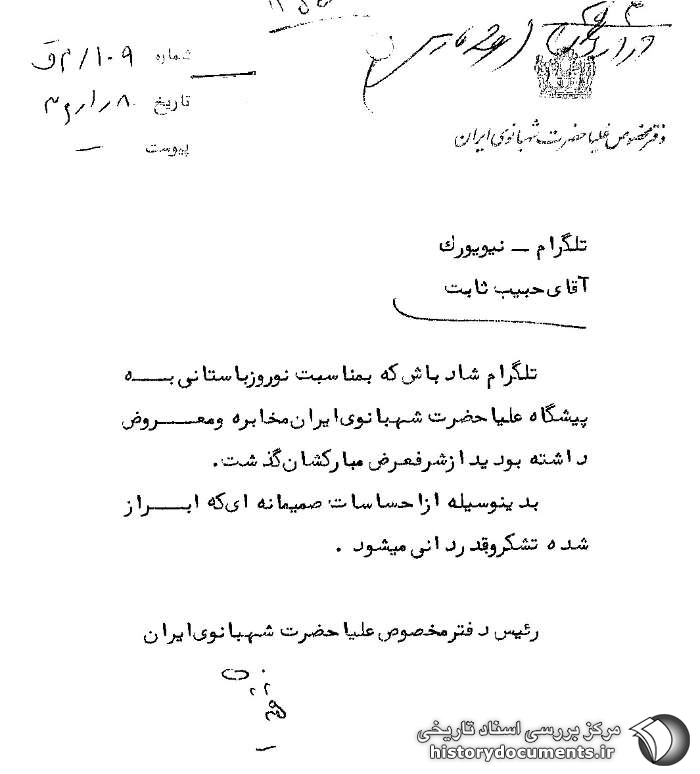 دفتر مخصوص علیاحضرت شهبانوی ایران
شماره ۱۰۹/م ق
تاریخ
پیوست —
تلگرام — نیویورک
آقای حبیب ثابت
تلگرام شاد باش که بمناسبت نوروزباستانی به
پیشگاه علیاحضرت شهبانوی ایران مخابره ومعروض
داشته بودید ازشرفعرض مبارکشان گذشت.
بدینوسیله ازاحساسات صمیمانه ای که ابراز
شده تشکروقدردانی میشود .
رئیس دفترمخصوص علیاحضرت شهبانوی ایران
مرکز بررسی اسناد تاریخی
historydocuments.ir